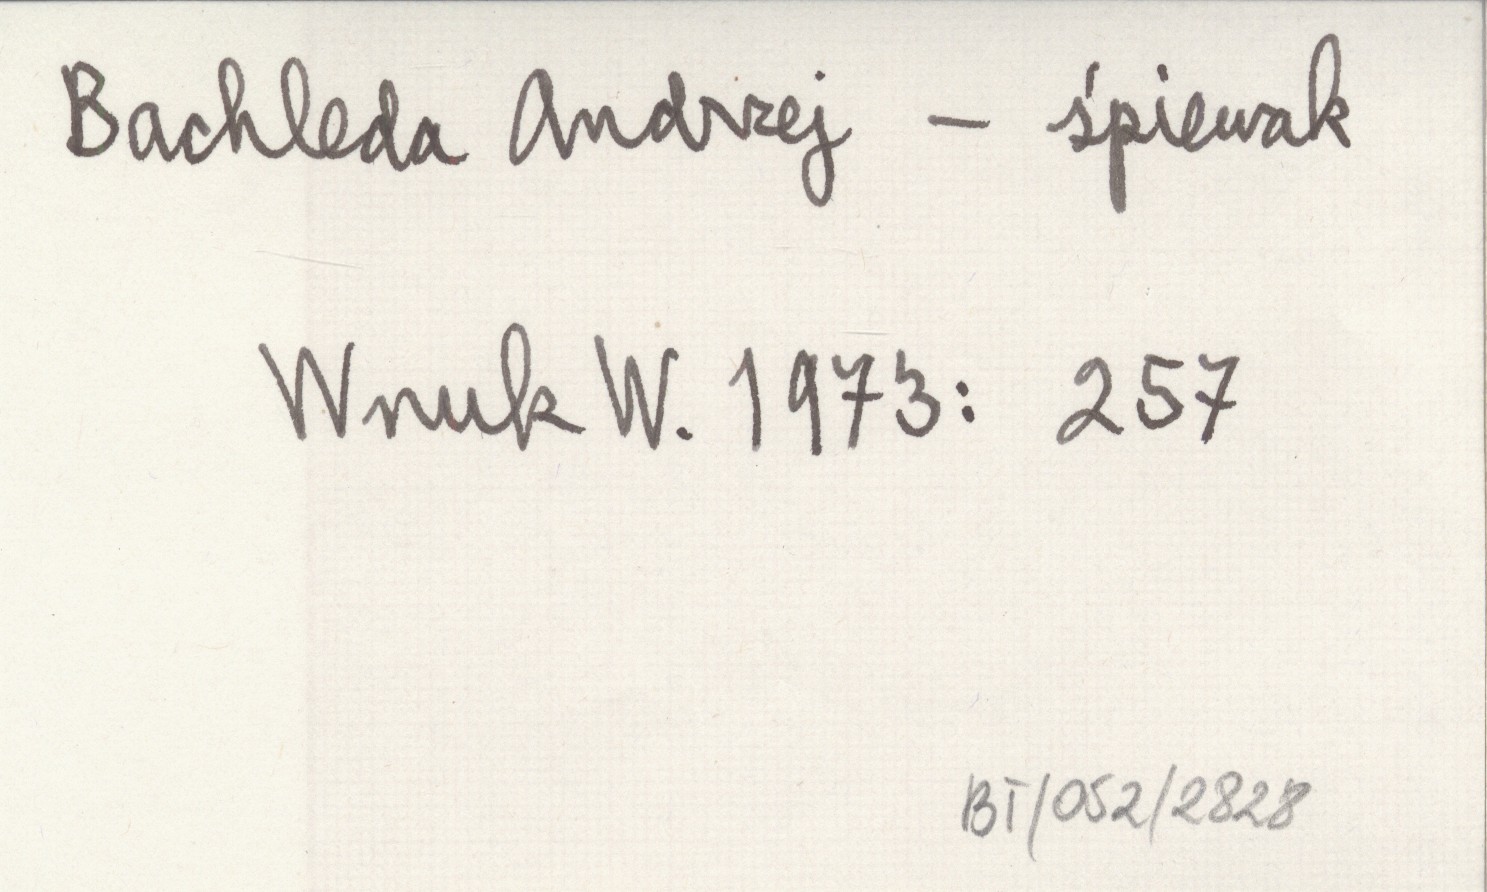 Bachleda Andrzej – śpiewak
Wnuk W. 1973: 257
BT/052/2828